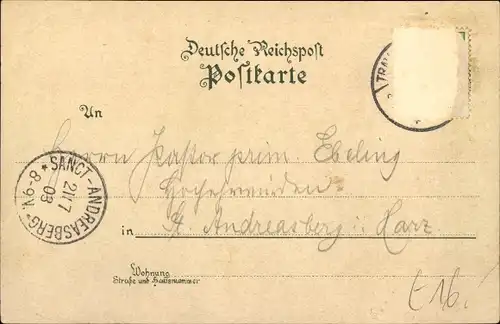 Deutsche Reichspost
Postkarte
TRA
An
Herrn Pastor prim. Ebeling
Hochehrwürden
SANCT-ANDREASBERG
21/7
03
8-9V.
in St. Andreasberg i. Harz
Wohnung
Straße und Hausnummer